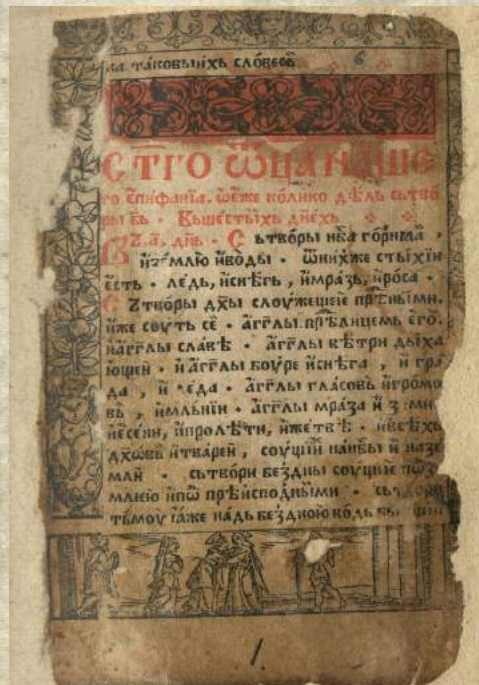 ка таковыихь словесѡ҃в
с҃тго ѿца наше
го епифанїа. ѡеже колико дѣль сьтво
ры бь · Вьшестыхь днехь
Вꙁ.а҃. днь · Сьтворы нб҃са горнꙗа ,
и землю иводы · ѿнихже стыхїи
есть · ледь, иснѣгь , имразь, ироса ·
Сꙁтворы дх҃ы слоужещеіе прѣнимь.
иже соуть се · агг҃лы прѣлицемь его.
иагг҃лы славѣ · агг҃лы вѣтри дыха
ющеи · иагг҃лы боуре иснѣга , и гра
да , и леда · агг҃лы гласовь игромо
вь , имльнїи · агг҃лы мраза и
иесени, ипролѣти, ижетвѣ · ивсѣхь
дх҃овь итварей , соущїи нанб҃ы и назе
мли · сьтвори бездны соущїие
млею ипѡ прѣисподными ·
тьмоу ꙗже надь бездною
1.